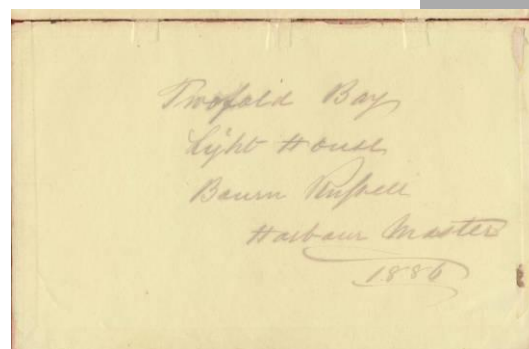 Twofold Bay
Light House
Bourn Russell
Harbour Master
1886